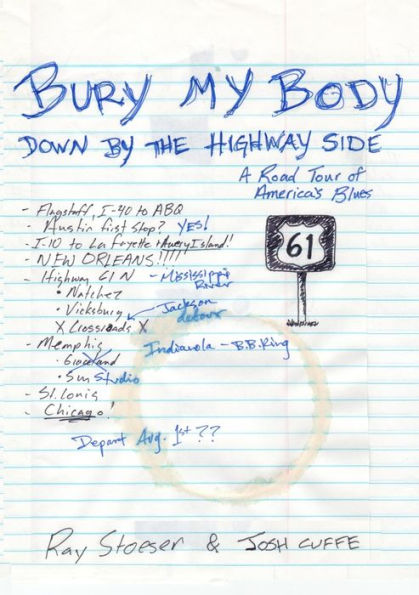 BURY MY BODY
DOWN BY THE HIGHWAY SIDE
A Road Tour of
America's Blues
- Flagstaff, I-40 to ABQ
- Austin first stop? YES!
- I-10 to La Fayette + Avery Island!
- NEW ORLEANS!!!!!
- Highway 61 N - Mississippi
River
• Natchez
• Vicksburg Jackson
detour
X Crossroads X
61
- Memphis Indianola - B.B. King
• Graceland
• Sun Studio
- St. Louis
- Chicago!
Depart Aug. 1st ??
Ray Stoeser & JOSH CUFFE